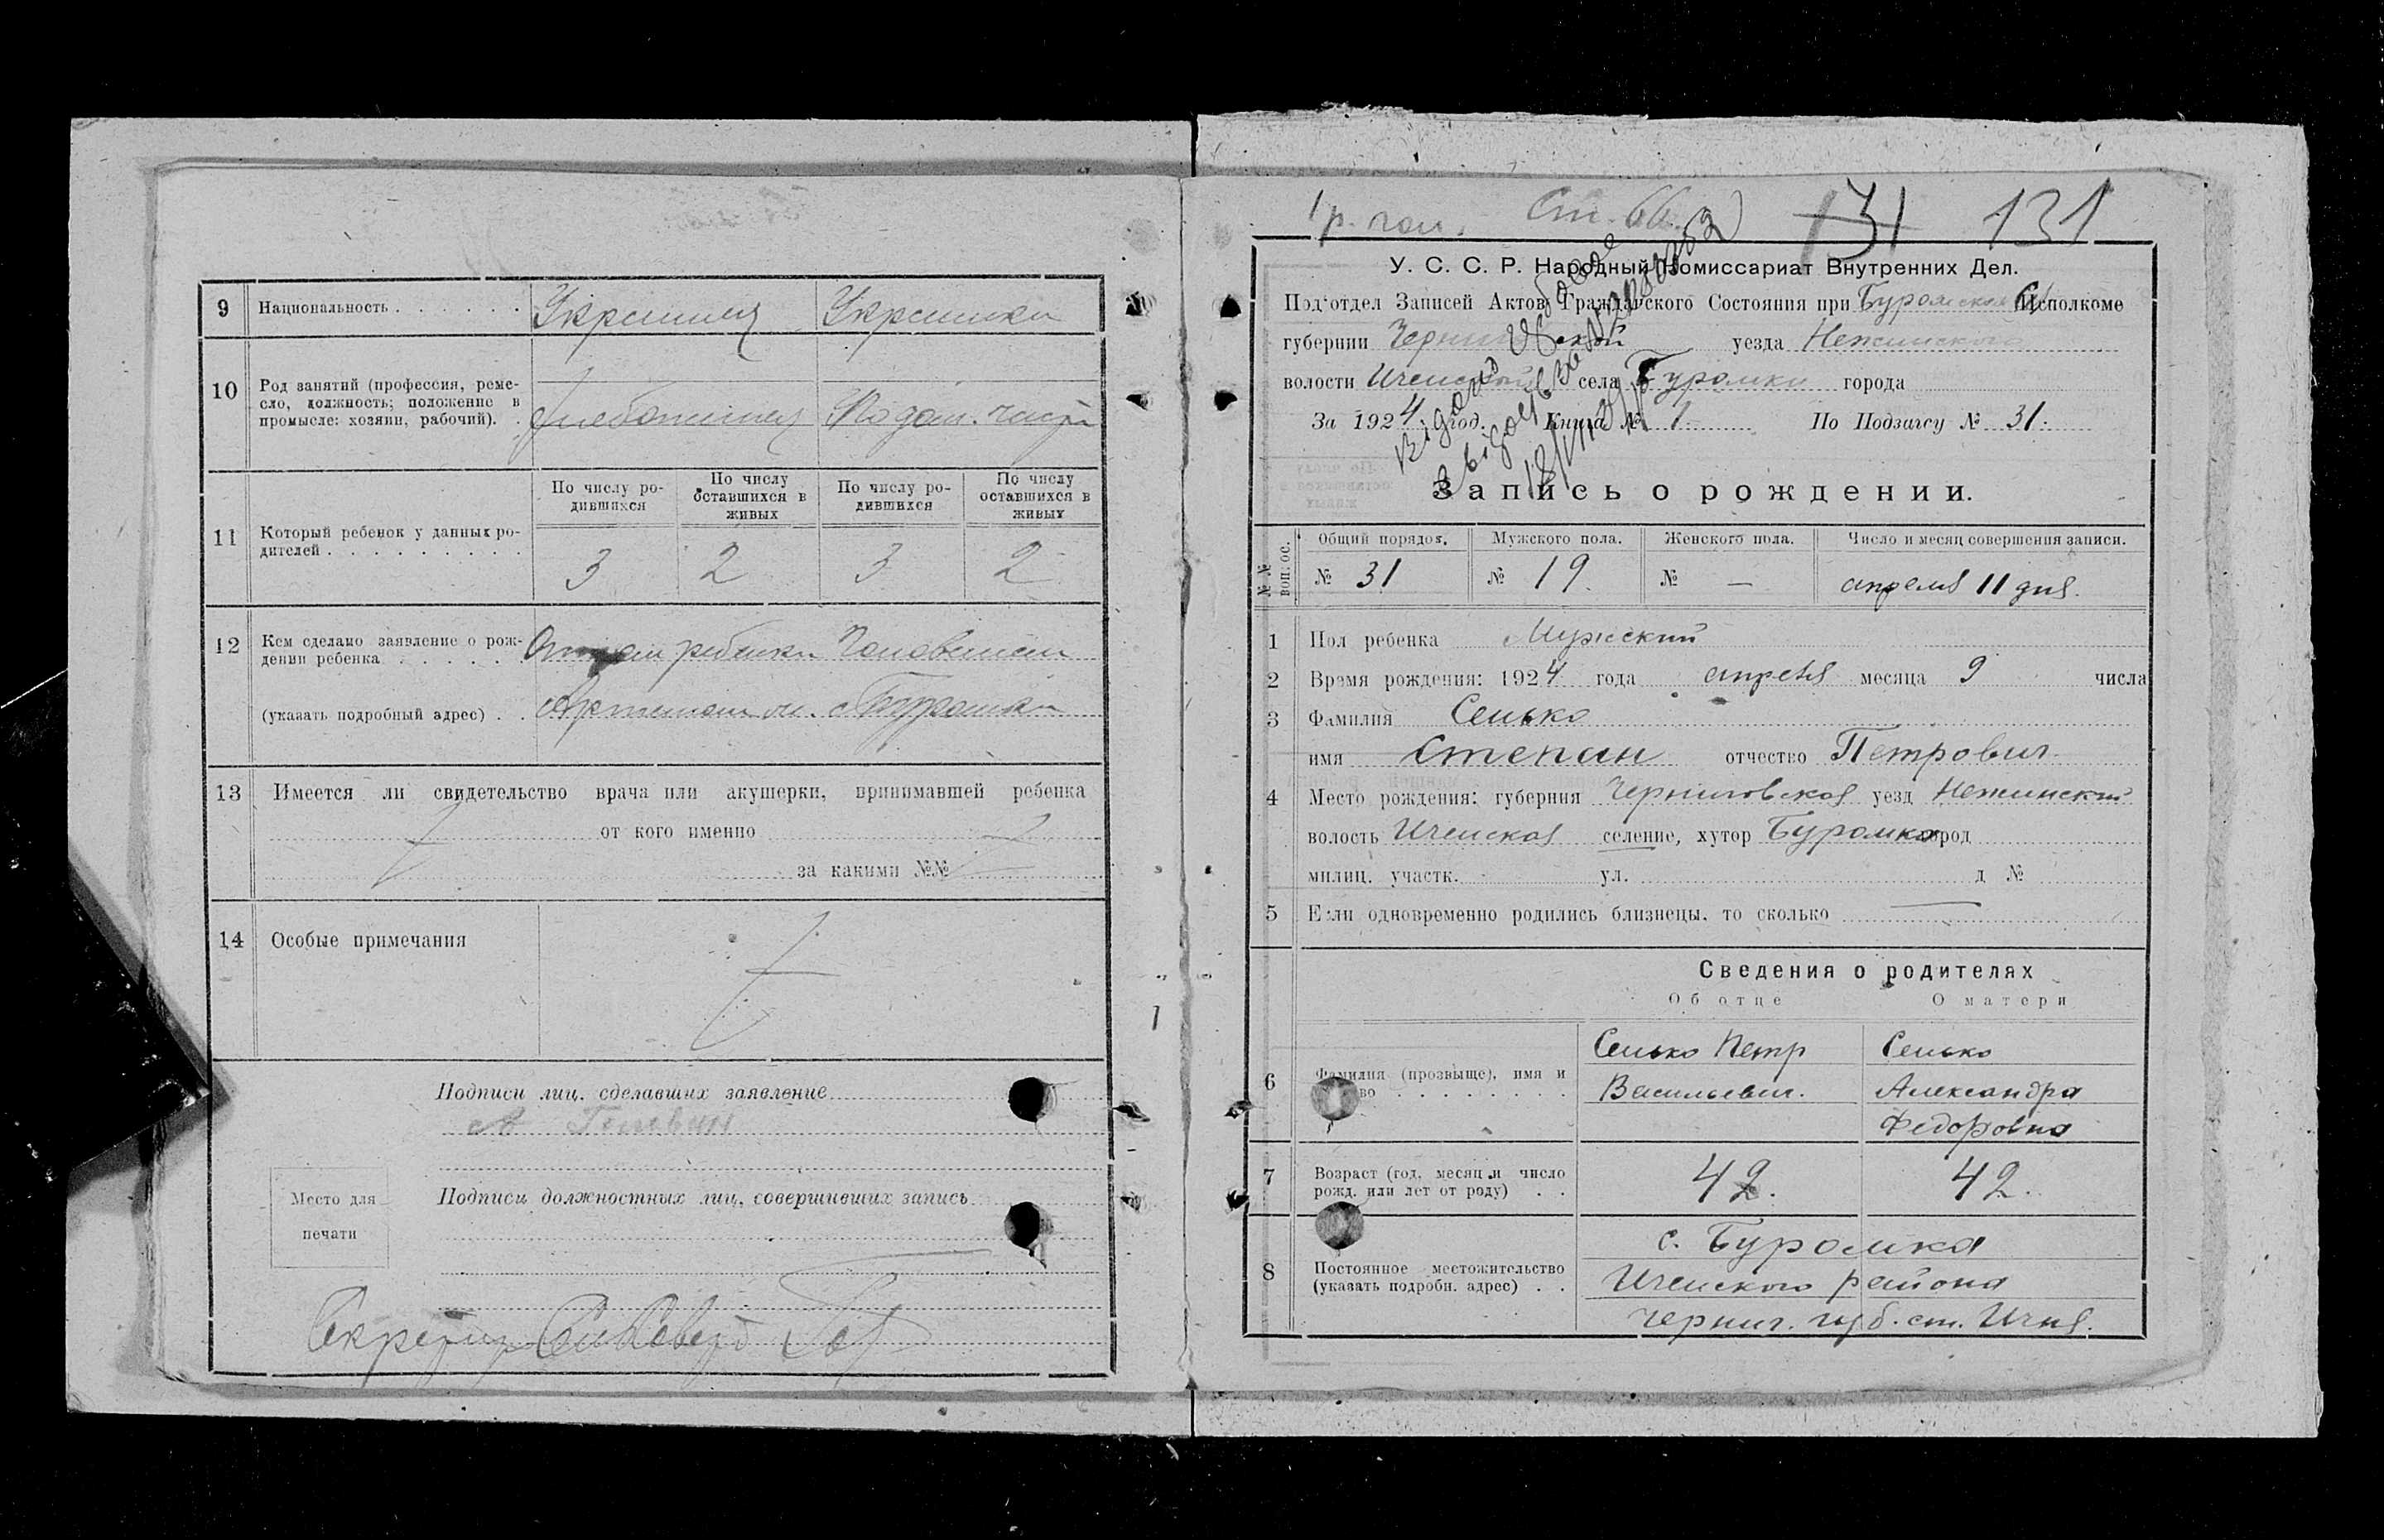 9 Национальность Украинец Украинка
10 Род занятий (профессия, реме-
сло, должность; положение в
промысле: хозяин, рабочий).
Хлебопашец По дом. части
11 Который ребенок у данных ро-
дителей
По числу ро-
дившихся
По числу
оставшихся в
живых
По числу ро-
дившихся
По числу
оставшихся в
живых
3 2 3 2
12 Кем сделано заявление о рож-
дении ребенка
Отцом ребенка Головатым
(указать подробный адрес) с. Буромка
13 Имеется ли свидетельство врача или акушерки, принимавшей ребенка
от кого именно
за какими №№
14 Особые примечания
Подписи лиц, сделавших заявление
Место для
печати
Подписи должностных лиц, совершивших запись
Секретарь
1
р. пол. Ст. 66 131 131
У. С. С. Р. Народный Комиссариат Внутренних Дел.
Подотдел Записей Актов Гражданского Состояния при Буромском С/Исполкоме
губернии Черниговской уезда Нежинского
волости Иченской села Буромки города
За 1924 год. Книга № 1 По Подзагсу № 31.
Запись о рождении.
№№ вопрос.
Общий порядок. Мужского пола. Женского пола. Число и месяц совершения записи.
№ 31 № 19. № — апреля 11 дня.
1 Пол ребенка Мужской
2 Время рождения: 1924 года апреля месяца 9 числа
3 Фамилия Сенько
имя Степан отчество Петрович
4 Место рождения: губерния Черниговская уезд Нежинский
волость Иченская селение, хутор Буромка город
милиц. участк. ул. д №
5 Если одновременно родились близнецы, то сколько —
Сведения о родителях
Об отце О матери
6 Фамилия (прозвыще), имя и
во
Сенько Петр
Васильевич.
Сенько
Александра
Федоровна
7 Возраст (год, месяц и число
рожд. или лет от роду)
42. 42.
8 Постоянное местожительство
(указать подробн. адрес)
с. Буромка
Иченского района
Черниг. губ. ст. Ичня.